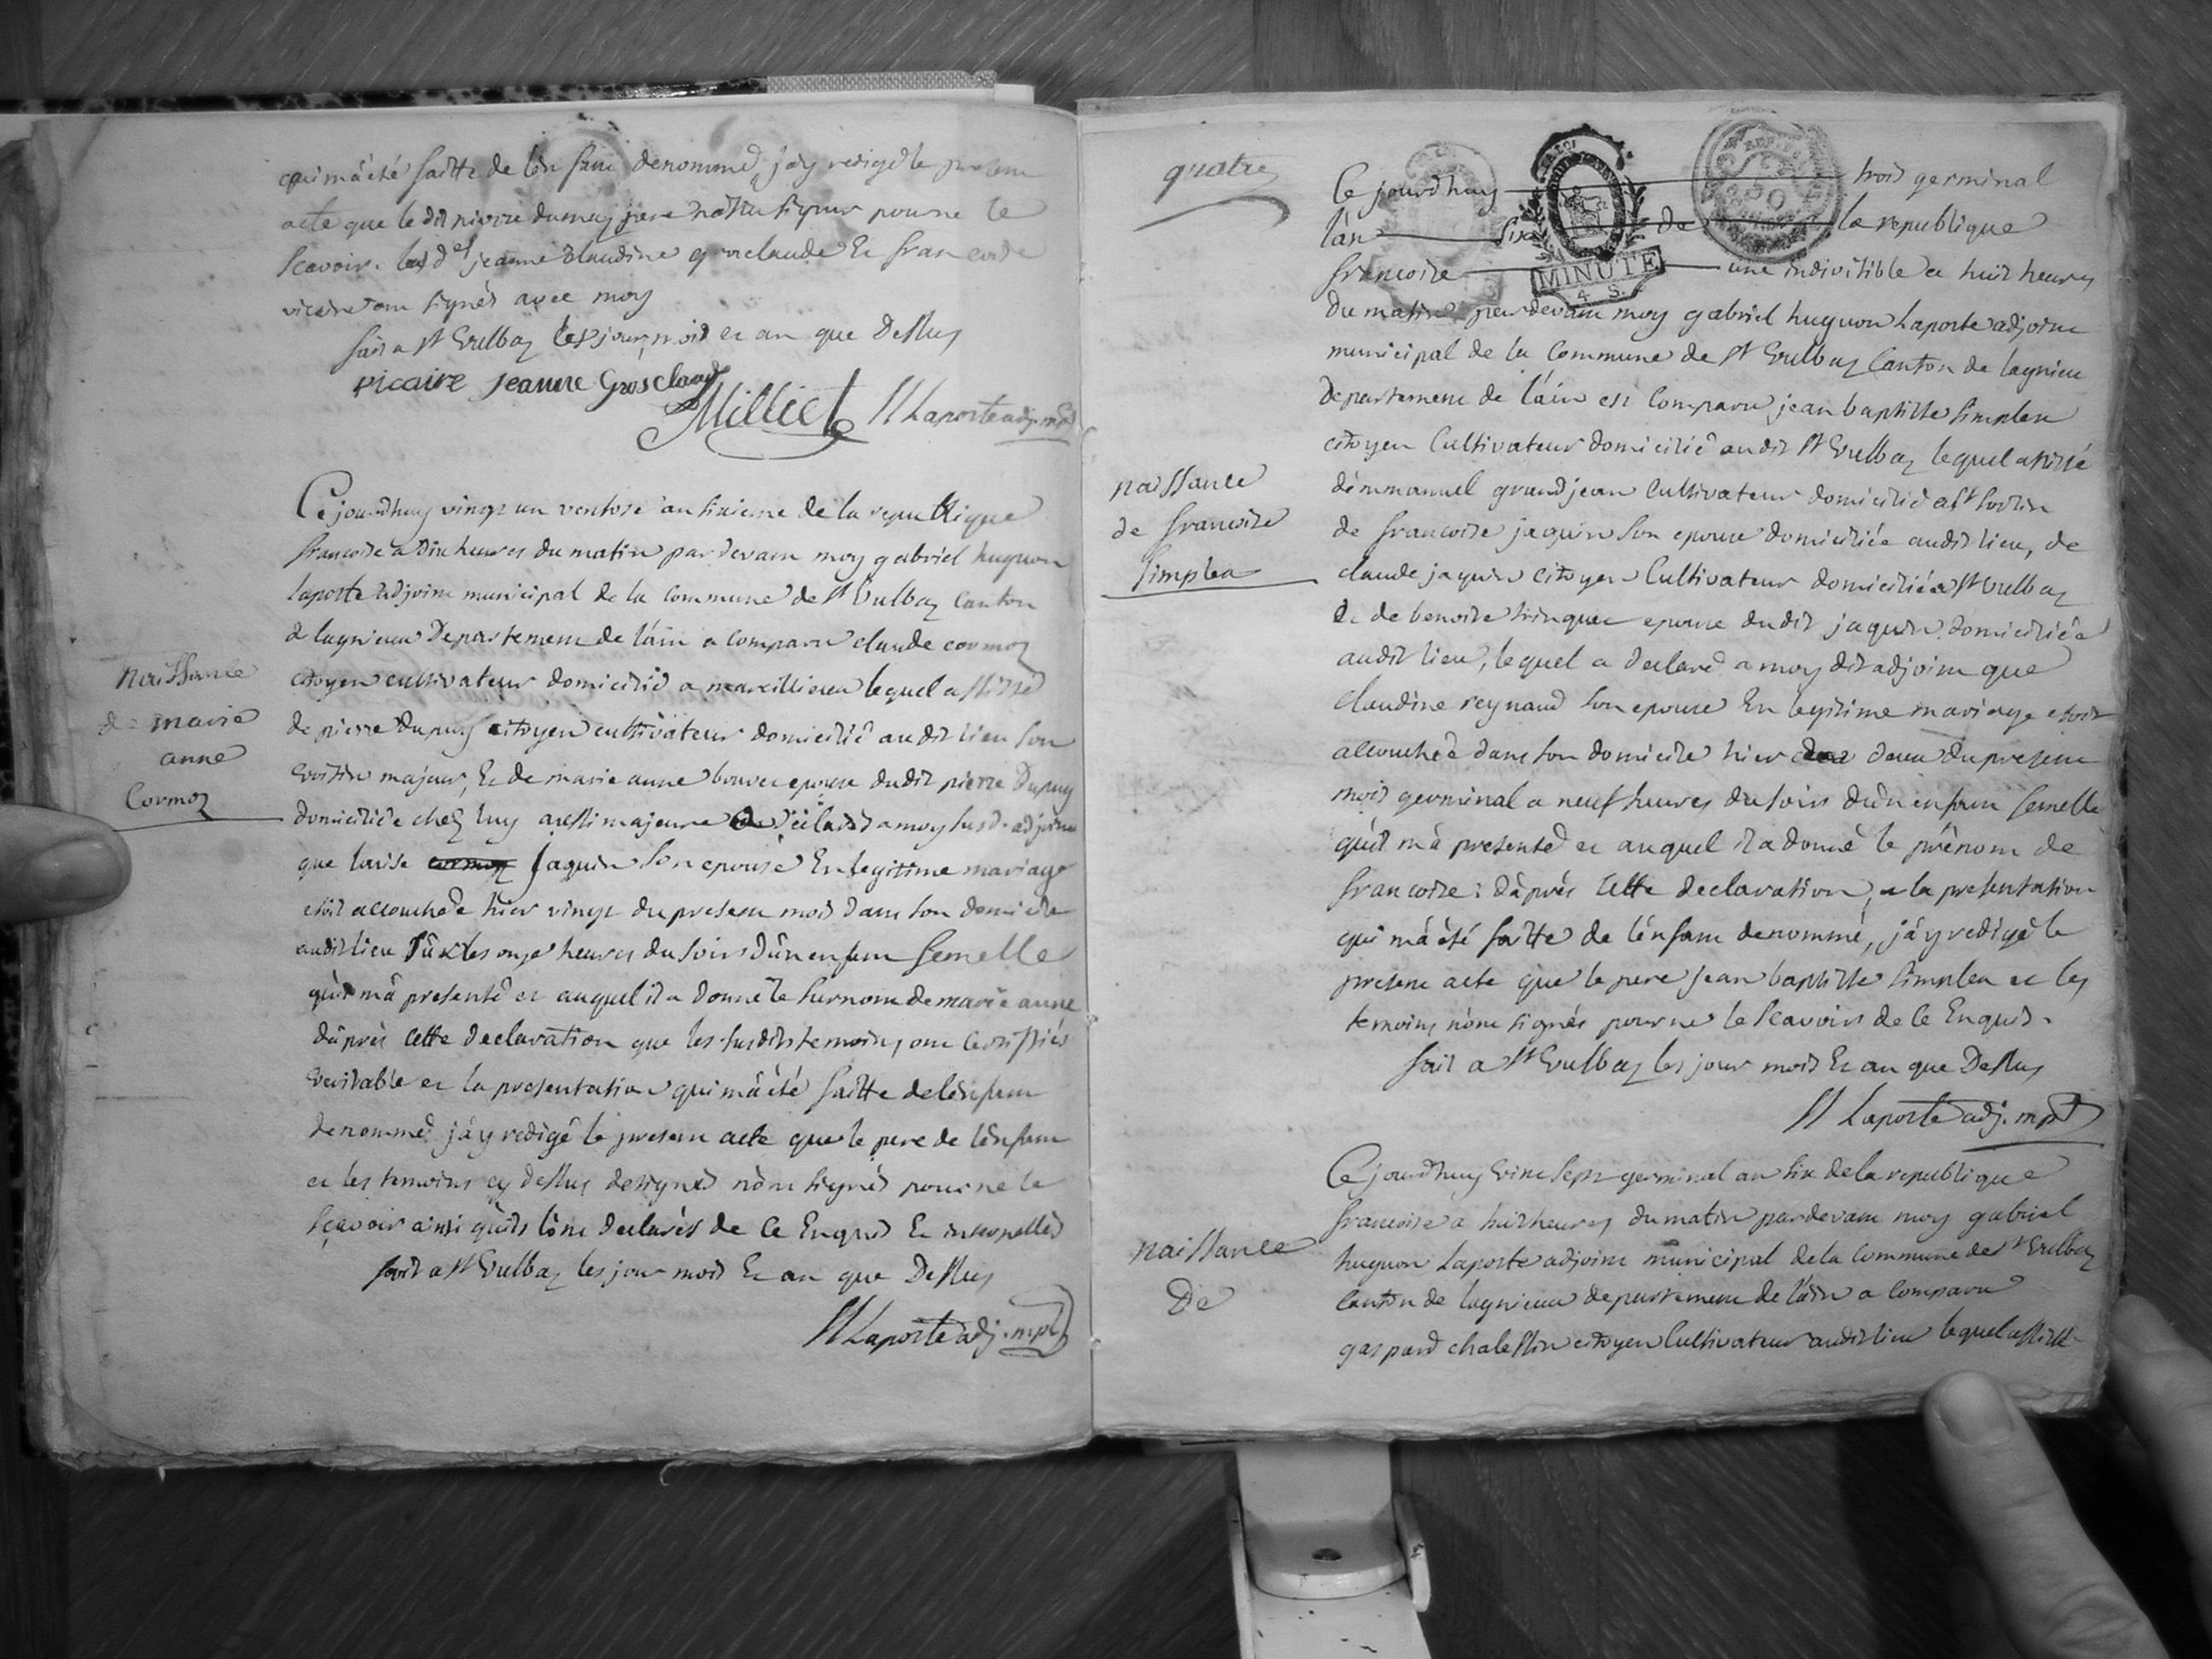 qui mà été faitte de lén fant denommé, j'ay redigé le present
acte que le dit pierre dumas pere na sceu signer pour ne le
scavoir. lesd.es jeanne claudine groclaude Et francoise
vicaire ont signés avec moy
fait a st Vulbaz les jour, mois et an que Dessus
vicaire jeanne Grosclaude
Milliet H Laporte adj. mpal
naissance
de marie
anne
Cormoz
Ce jourdhuy vingt un ventose an sixieme de la republique
francoise a dix heures du matin par devant moy gabriel hugnon
laporte adjoint municipal de la commune de st Vulbaz canton
de lagnieux Departement de l'ain a comparu claude cormoz
citoyen cultivateur domicilié a marcillieux lequel assisté
de pierre dupuy citoyen cultivateur domicilié audit lieu son
voisin majeur, Et de marie anne bouvet epouse dudit pierre Dupuy
domiciliée chez luy aussi majeure a déclaré a moy susd. adjoint
que louise cormoz Jaquin son epouse En legitime mariage
etoit accouchée hier vingt du present mois dans son domicile
audit lieu sur les onze heures du soir d'un enfant femelle
qu'il mà presenté et auquel il a donné le surnom de marie anne
dàprès cette declaration que les susdits temoins ont certiffiés
veritable et la presentation qui mà été faitte de lénfant
denommé j'ay redigé le present acte que le pere de lénfant
et les temoins cy dessus designés nònt signés pour ne le
sçavoir ainsi qu'ils lònt declarés de ce Enquis Et interpellés
fait a st Vulbaz les jour mois Et an que Dessus
H Laporte adj. mpal
quatre
MINUTE
4 S.
50
Ce jourdhuy trois germinal
l'an six de la republique
francoise une indivisible a huit heures
du matin par devant moy gabriel hugnon Laporte adjoint
municipal de la commune de st Vulbaz Canton de lagnieu
Departement de l'ain est Comparu jean baptiste simplex
citoyen Cultivateur domicilié audit st Vulbaz lequel assisté
démmanuel grandjean Cultivateur domicilié a st sorlin
de francoise jaquin son epouse domiciliée audit lieu, de
claude jaquin citoyen Cultivateur domicilié a st Vulbaz
Et de benoite trinquet epouse dudit jaquin domiciliée
audit lieu, lequel a declaré a moy dit adjoint que
claudine reynaud son epouse En legitime mariage etoit
accouchée dans son domicile hier deux du present
mois germinal a neuf heures du soir dùn enfant femelle
qu'il mà presenté et auquel il a donné le prénom de
francoise: dàprès cette declaration, et la presentation
qui mà été faitte de lénfant denommé, j'ay redigé le
present acte que le pere jean baptiste simplex et les
temoins nònt signés pour ne le scavoir de ce Enquis.
fait a st Vulbaz les jour mois Et an que Dessus
H Laporte adj. mpal
naissance
de francoise
simplex
Ce jourdhuy vint sept germinal an six de la republique
francoise a huit heures du matin pardevant moy gabriel
hugnon Laporte adjoint municipal de la Commune de st Vulbaz
Canton de lagnieux departement de l'ain a Comparu
gaspard chalessin citoyen Cultivateur audit lieu lequel assisté
naissance
De